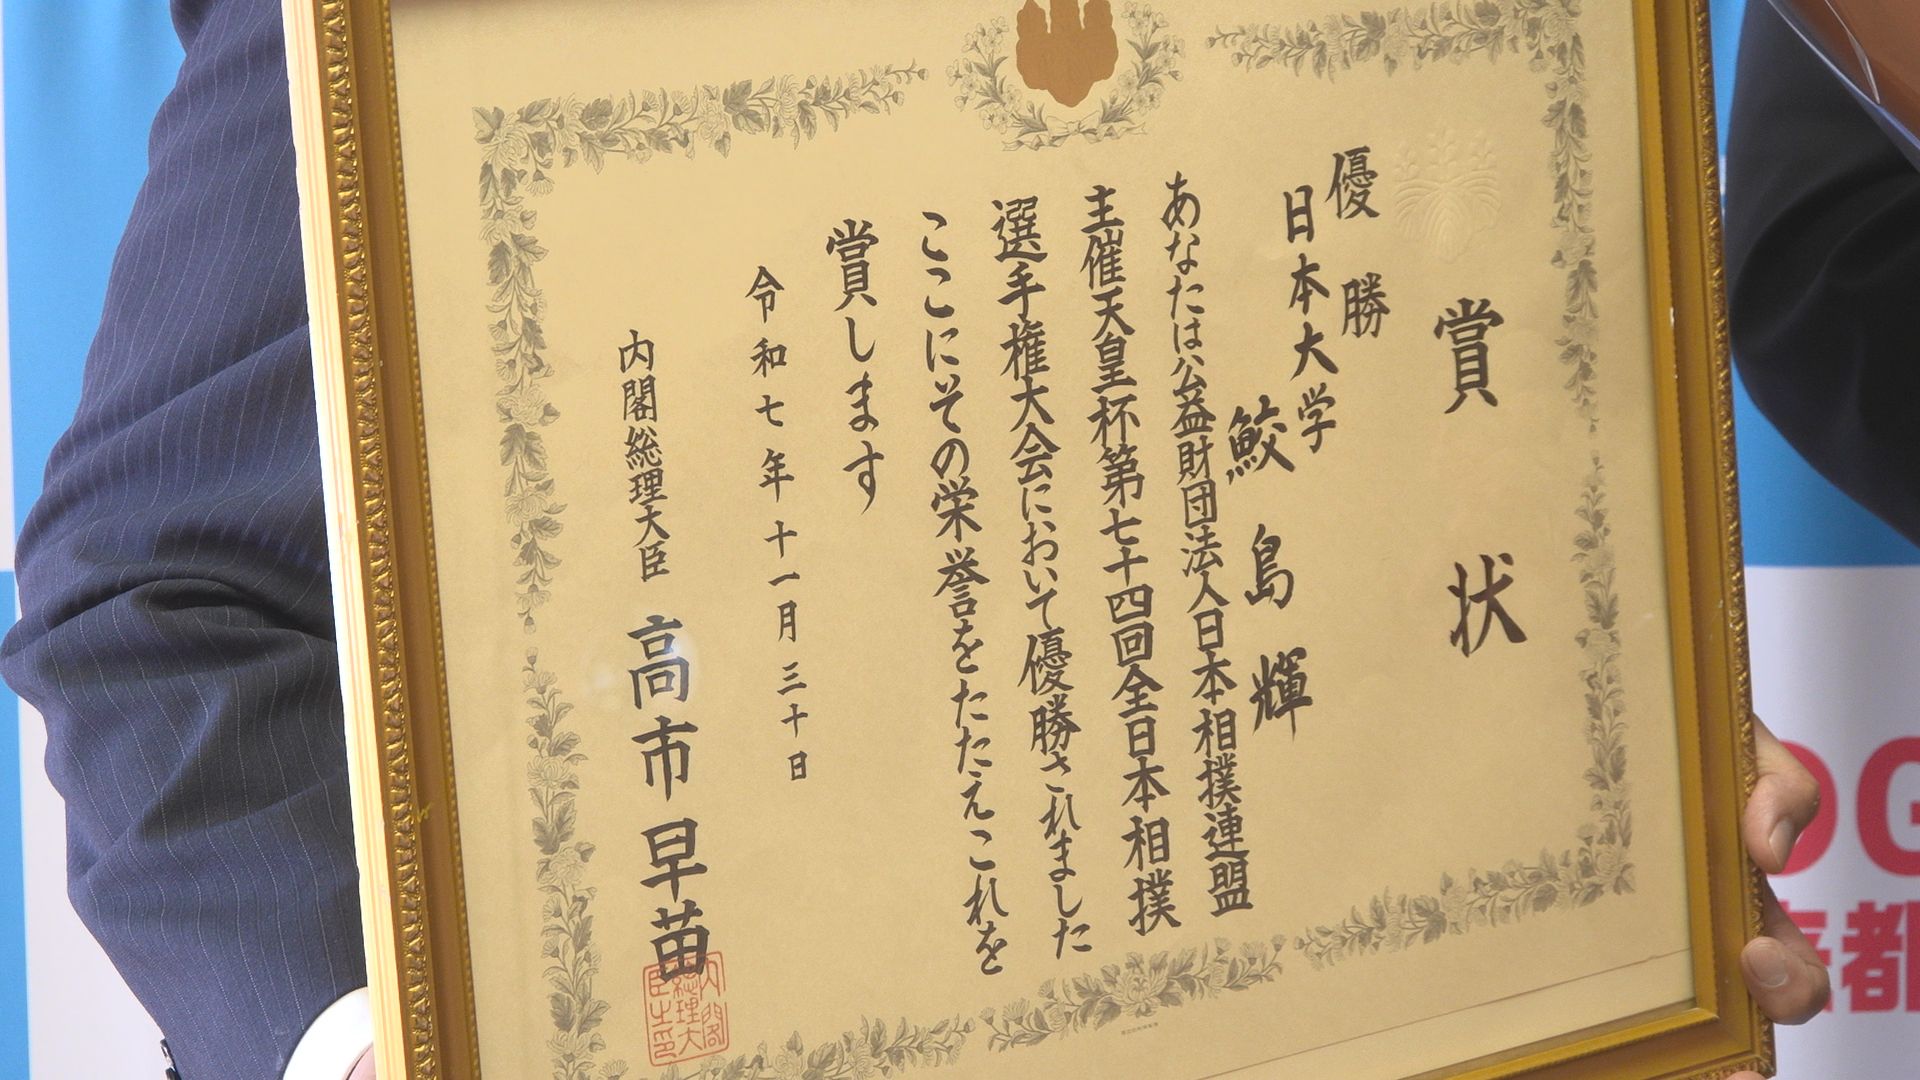 賞状
優勝
日本大学
鮫島輝
あなたは公益財団法人日本相撲連盟
主催天皇杯第七十四回全日本相撲
選手権大会において優勝されました
ここにその栄誉をたたえこれを
賞します
令和七年十一月三十日
内閣総理大臣 高市早苗
内閣総理大臣之印
OG
都